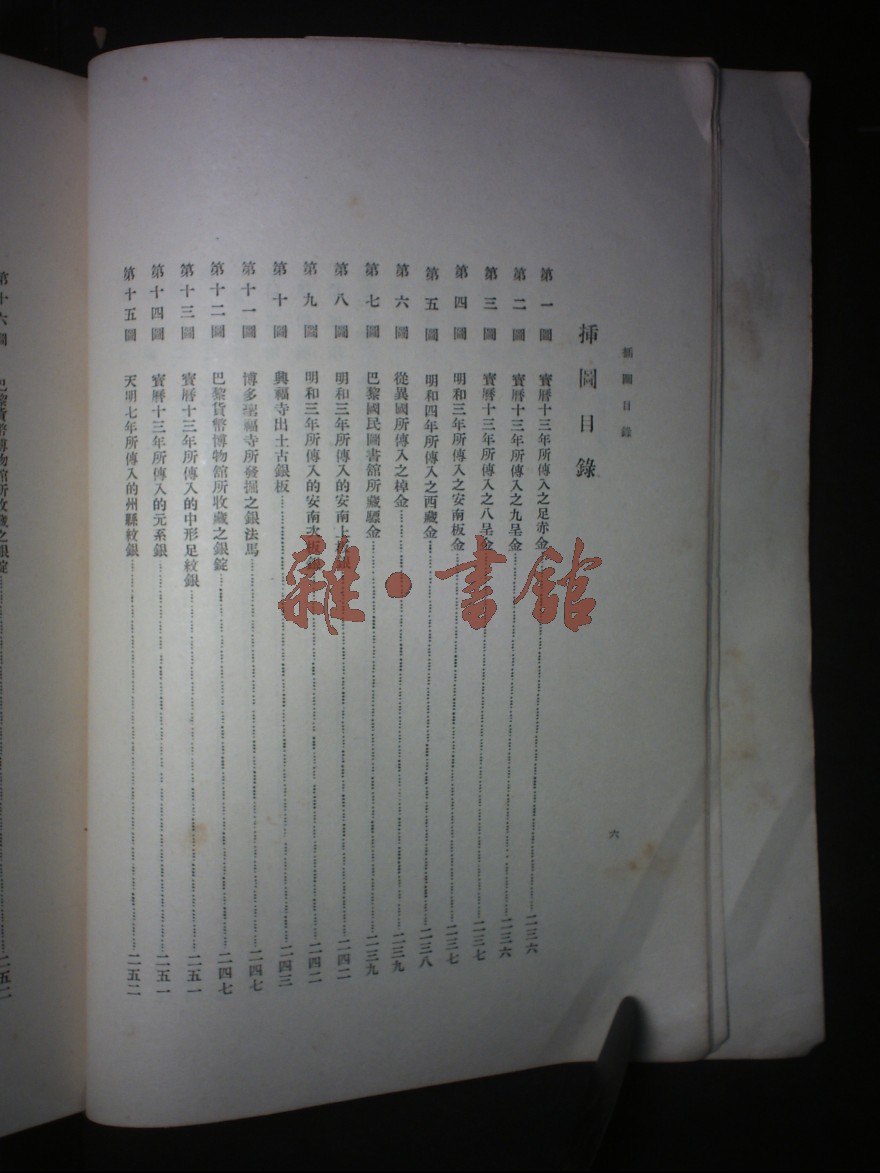 插圖目錄
六
揷圖目錄
第一圖 寶曆十三年所傳入之足赤金……二三六
第二圖 寶曆十三年所傳入之九呈金……二三六
第三圖 寶曆十三年所傳入之八呈金……二三七
第四圖 明和三年所傳入之安南板金……二三七
第五圖 明和四年所傳入之西藏金……二三八
第六圖 從異國所傳入之棹金……二三九
第七圖 巴黎國民圖書館所藏驃金……二三九
第八圖 明和三年所傳入的安南上板銀……二四二
第九圖 明和三年所傳入的安南次板銀……二四二
第十圖 興福寺出土古銀板……二四三
第十一圖 博多聖福寺所發掘之銀法馬……二四七
第十二圖 巴黎貨幣博物館所收藏之銀錠……二四七
第十三圖 寶曆十三年所傳入的中形足紋銀……二五一
第十四圖 寶曆十三年所傳入的元系銀……二五一
第十五圖 天明七年所傳入的州縣紋銀……二五二
第十六圖 巴黎貨幣博物館所收藏之銀錠……二五二
雜·書館